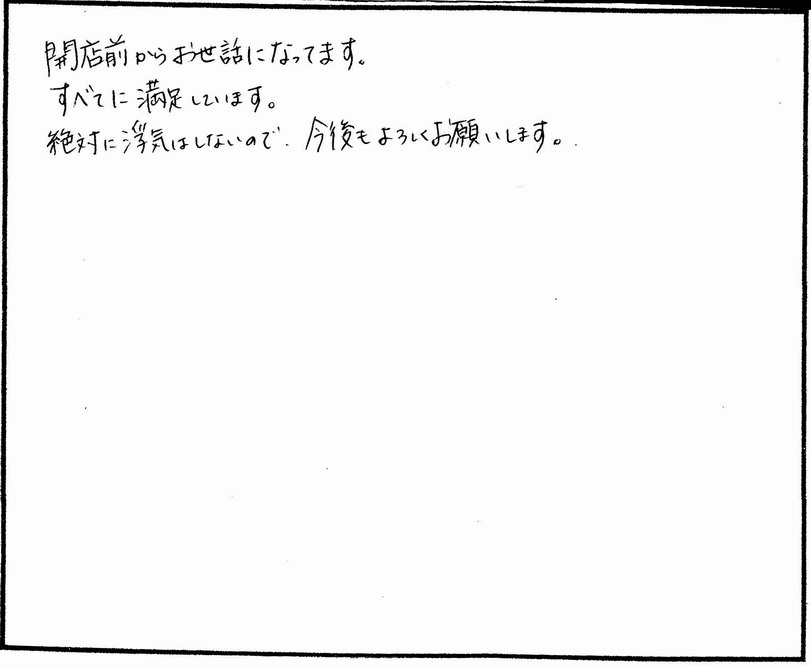 開店前からお世話になってます。
すべてに満足しています。
絶対に浮気はしないので、今後もよろしくお願いします。